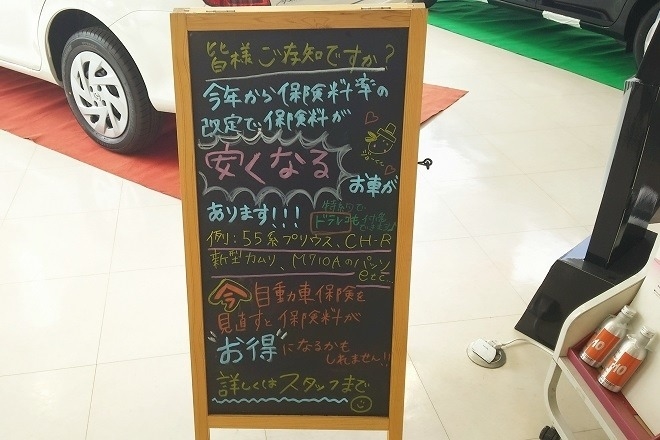 皆様ご存知ですか?
今年から保険料率の
改定で保険料が
安くなる
お車が
あります!!!
特約で
ドラレコも
例:55系プリウス、CH-R
新型カムリ、M710Aのパッソ
etc...
今自動車保険を
見直すと保険料が
"お得"になるかも
しれません!!
詳しくはスタッフまで
10
10